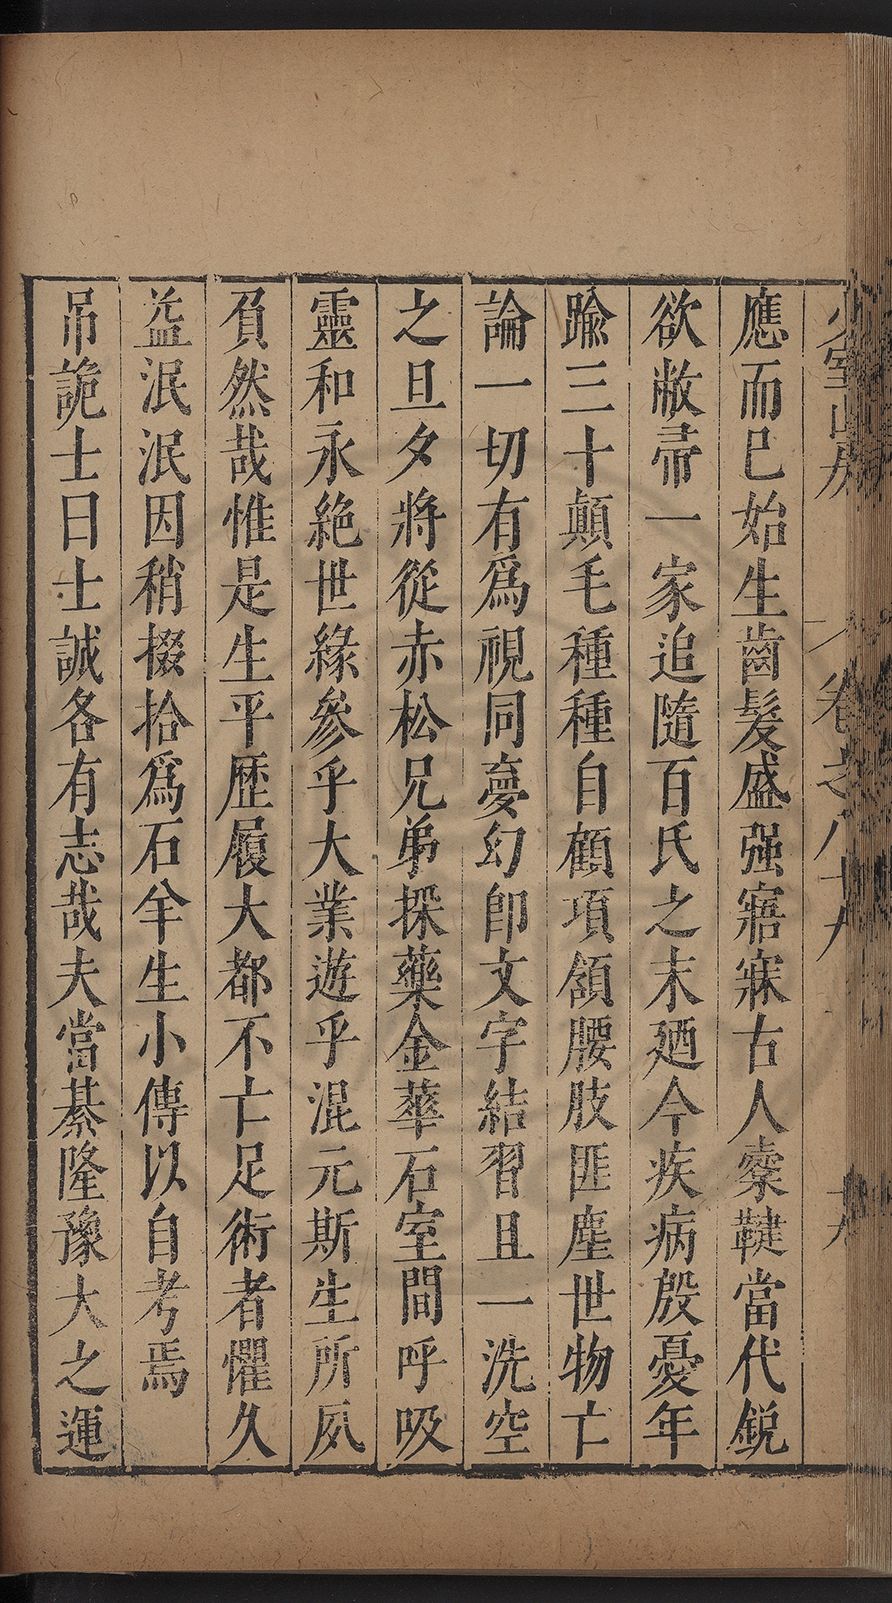 少室山房
卷之八十九
十六
應而已始生齒髮盛强寤寐古人槖鞬當代銳
欲敝帚一家追隨百氏之末廼今疾病殷憂年
踰三十顛毛種種自顧項領腰肢匪塵世物亡
論一切有爲視同夢幻卽文字結習且一洗空
之旦夕將從赤松兄弟採藥金華石室間呼吸
靈和永絶世緣參乎大業遊乎混元斯生所夙
負然哉惟是生平歷履大都不亡足術者懼久
益泯泯因稍掇拾爲石羊生小傳以自考焉
吊詭士曰士誠各有志哉夫當綦隆豫大之運